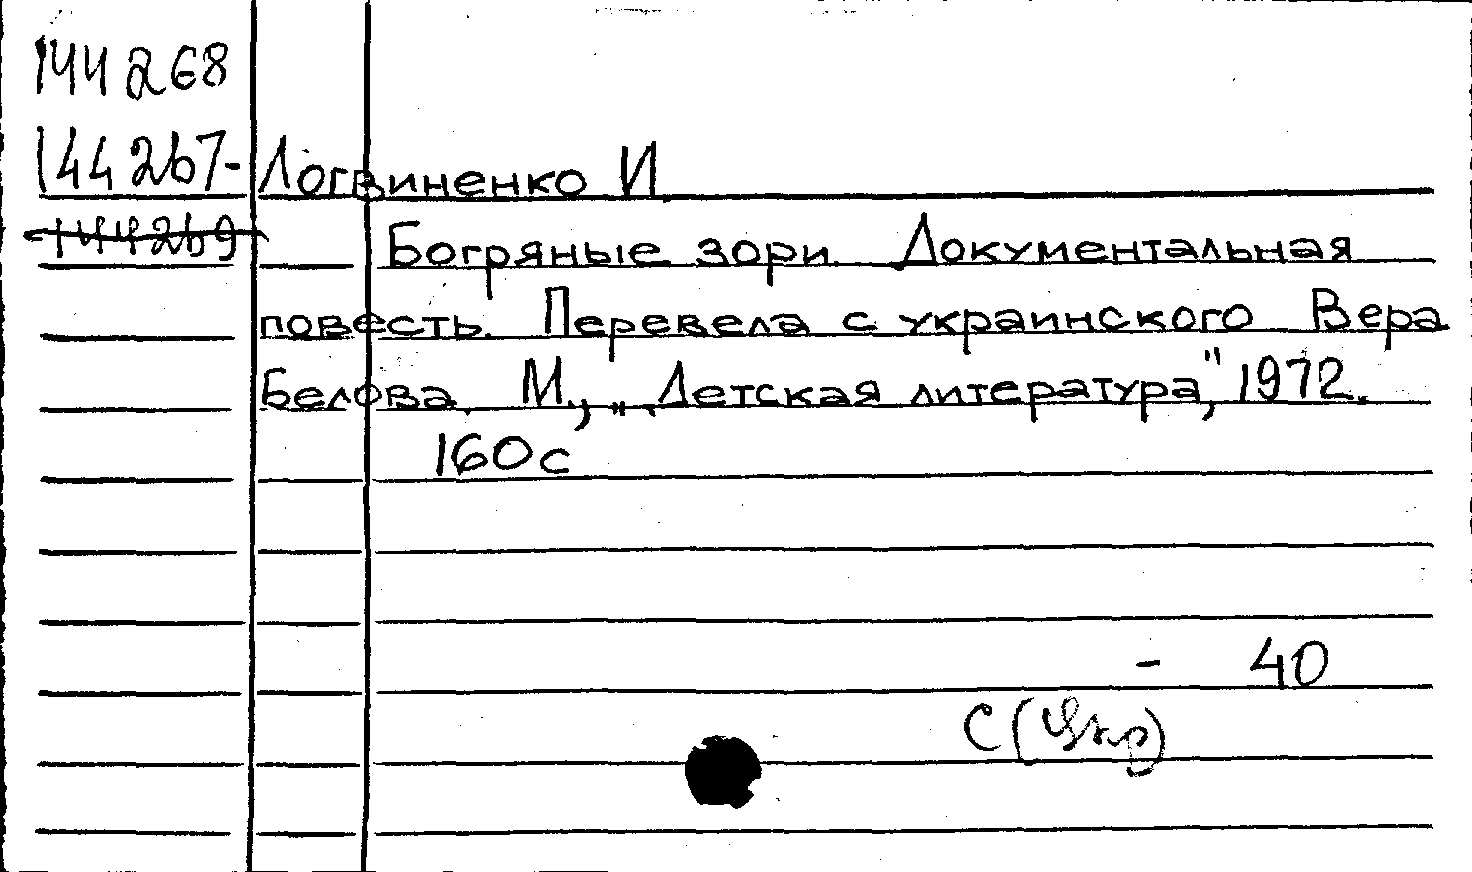 144268
144267- Логвиненко И
144269 Богряные зори. Документальная
повесть. Перевела с украинского Вера
Белова. М., „Детская литература," 1972.
160с
- 40
С(Укр)